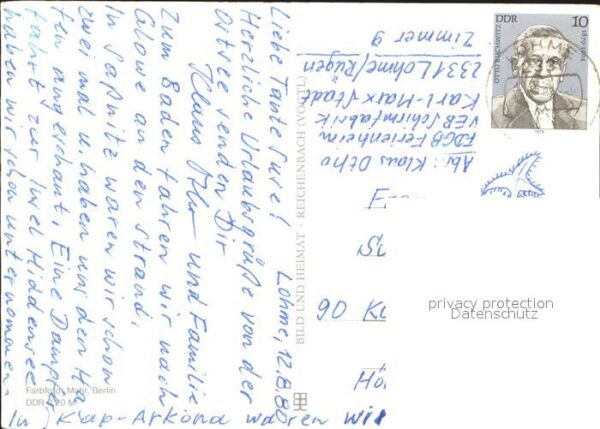 Lohme, 12.8.80
Liebe Tante Suse!
Herzliche Urlaubsgrüße von der
Ostsee senden Dir
Klaus Otho und Familie
Zum Baden fahren wir nach
Glove an den Strand.
In Saßnitz waren wir schon
zwei mal u. haben uns den Ha
fen angeschaut. Eine Dampfer
fahrt zur Insel Hiddensee
haben wir schon unternommen.
In Kap-Arkona waren wir
Farbfoto: Mohr, Berlin
DDR 0,20 M
BILD UND HEIMAT · REICHENBACH (VOGTL)
Abs.: Klaus Otho
FDGB Ferienheim
VEB Schirmfabrik
Karl-Marx-Stadt
2331 Lohme/Rügen
Zimmer 9
DDR
10
OTTO BUCHWITZ
1879-1964
LOHME
90
privacy protection
Datenschutz